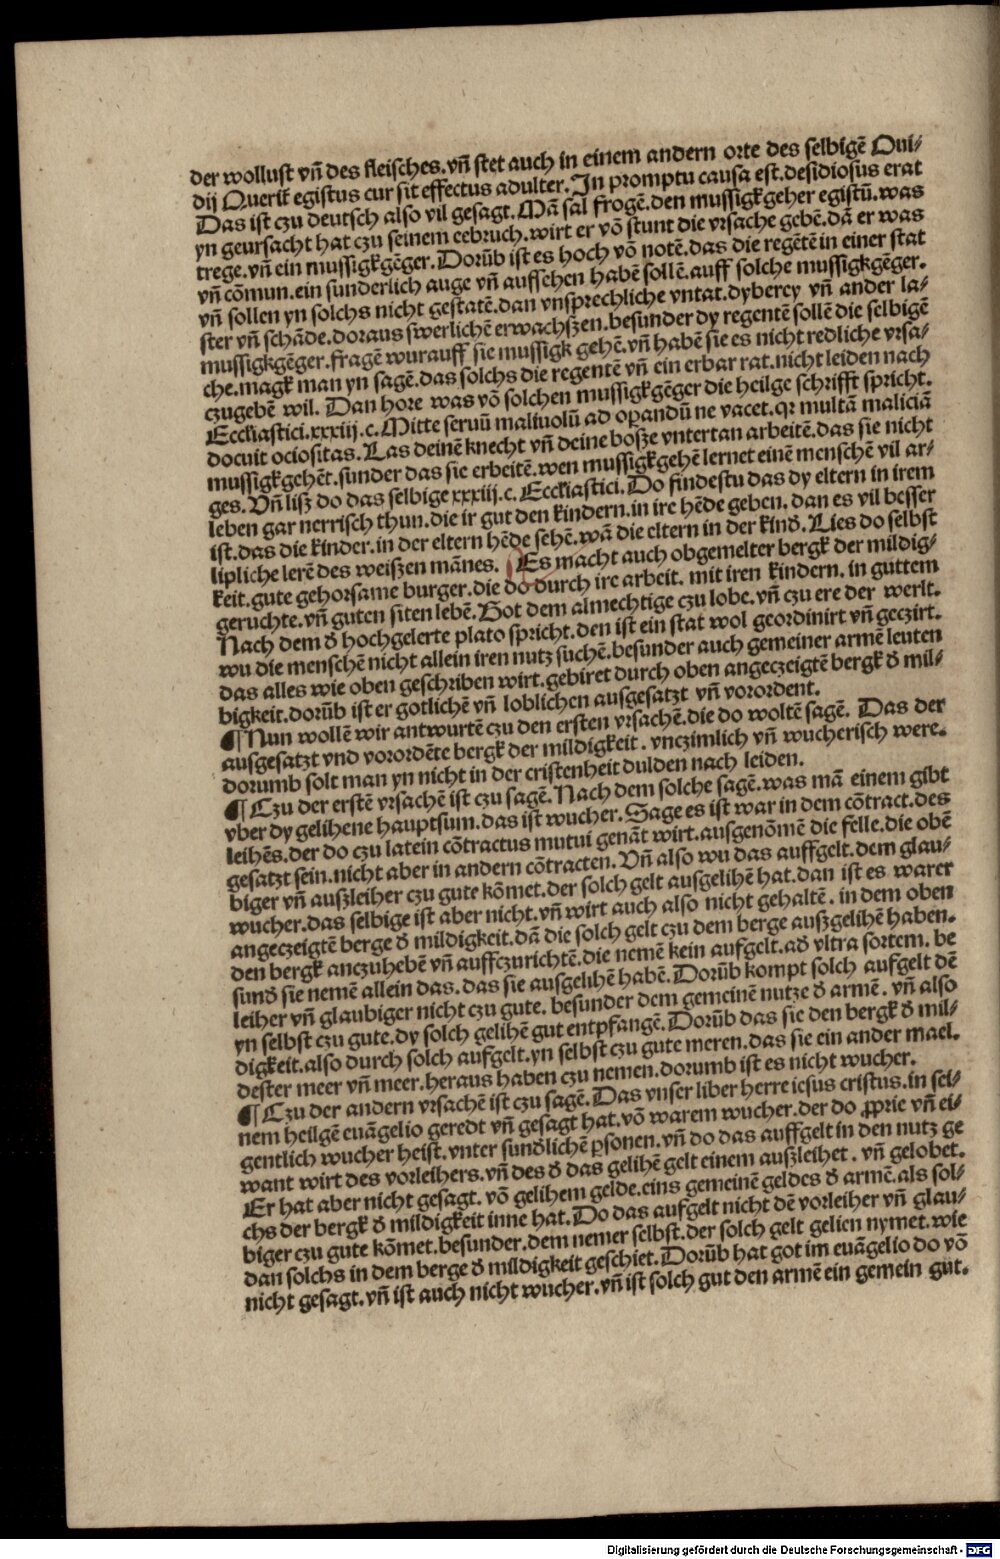 der wollust vñ des fleisches. vñ stet auch in einem andern orte des selbigẽ Oui⸗
dij Querit̃ egistus cur sit effectus adulter. In promptu causa est. desidiosus erat
Das ist czu deutsch also vil gesagt. Mã sal frogẽ. den mussigk̃geher egistũ. was
yn geursacht hat czu seinem eebruch. wirt er võ stunt die vrsache gebẽ. dã er was
trege. vñ ein mussigk̃gẽger. Dorũb ist es hoch võ notẽ. das die regẽtẽ in einer stat
vñ cõmun. ein sunderlich auge vñ aufsehen habẽ sollẽ. auff solche mussigk̃gẽger.
vñ sollen yn solchs nicht gestatẽ. dan vnsprechliche vntat. dyberey vñ ander la⸗
ster vñ schãde. doraus swerlichẽ erwachßen. besunder dy regentẽ sollẽ die selbigẽ
mussigkgẽger. fragẽ wurauff sie mussigk gehẽ. vñ habẽ sie es nicht redliche vrsa⸗
che. magk̃ man yn sagẽ. das solchs die regentẽ vñ ein erbar rat. nicht leiden nach
czugebẽ wil. Dan hore was võ solchen mussigk̃gẽger die heilge schrifft spricht.
Eccl̃iastici. xxxiij. c. Mitte seruũ maliuolũ ad oꝑandũ ne vacet. qꝛ multã maliciã
docuit ociositas. Las deinẽ knecht vñ deine boßze vntertan arbeitẽ. das sie nicht
mussigk̃gehẽt. sunder das sie erbeitẽ. wen mussigk̃gehẽ lernet einẽ menschẽ vil ar⸗
ges. Vñ liß do das selbige xxxiij. c. Eccl̃iastici. Do findestu das dy eltern in irem
leben gar nerrisch thun. die ir gut den kindern. in ire hẽde geben. dan es vil besser
ist. das die kinder. in der eltern hẽde sehẽ. wã die eltern in der kinđ. Lies do selbst
lipliche lerẽ des weißen mãnes. Es macht auch obgemelter bergk̃ der mildig⸗
keit. gute gehorsame burger. die do durch ire arbeit. mit iren kindern. in guttem
geruchte. vñ guten siten lebẽ. Got dem almechtige czu lobe. vñ czu ere der werlt.
Nach dem đ hochgelerte plato spricht. den ist ein stat wol geordinirt vñ geczirt.
wu die menschẽ nicht allein iren nutz suchẽ. besunder auch gemeiner armẽ leuten
das alles wie oben geschriben wirt. gebiret durch oben angeczeigtẽ bergk̃ đ mil⸗
bigkeit. dorũb ist er gotlichẽ vñ loblichen ausgesatzt vñ vorordent.
¶ Nun wollẽ wir antwurtẽ czu den ersten vrsachẽ. die do woltẽ sagẽ. Das der
ausgesatzt vnd vorordẽte bergk̃ der mildigkeit. vnczimlich vñ wucherisch were.
dorumb solt man yn nicht in der cristenheit dulden nach leiden.
¶ Czu der erstẽ vrsachẽ ist czu sagẽ. Nach dem solche sagẽ. was mã einem gibt
vber dy gelihene hauptsum. das ist wucher. Sage es ist war in dem cõtract. des
leihẽs. der do czu latein cõtractus mutui genãt wirt. ausgenõmẽ die felle. die obẽ
gesatzt sein. nicht aber in andern cõtracten. Vñ also wu das auffgelt. dem glau⸗
biger vñ außleiher czu gute kõmet. der solch gelt ausgelihẽ hat. dan ist es warer
wucher. das selbige ist aber nicht. vñ wirt auch also nicht gehaltẽ. in dem oben
angeczeigtẽ berge đ mildigkeit. dã die solch gelt czu dem berge außgelihẽ haben.
den bergk̃ anczuhebẽ vñ auffczurichtẽ. die nemẽ kein aufgelt. ađ vltra sortem. be
sunđ sie nemẽ allein das. das sie ausgelihẽ habẽ. Dorũb kompt solch aufgelt dẽ
leiher vñ glaubiger nicht czu gute. besunder dem gemeinẽ nutze đ armẽ. vñ also
yn selbst czu gute. dy solch gelihẽ gut entpfangẽ. Dorũb das sie den bergk̃ đ mil⸗
digkeit. also durch solch aufgelt. yn selbst czu gute meren. das sie ein ander mael.
dester meer vñ meer. heraus haben czu nemen. dorumb ist es nicht wucher.
¶ Czu der andern vrsachẽ ist czu sagẽ. Das vnser liber herre iesus cristus. in sei⸗
nem heilgẽ euãgelio geredt vñ gesagt hat. võ warem wucher. der do ꝓprie vñ ei⸗
gentlich wucher heist. vnter sunđlichẽ ꝑsonen. vñ do das auffgelt in den nutz ge
want wirt des vorleihers. vñ des đ das gelihẽ gelt einem außleihet. vñ gelobet.
Er hat aber nicht gesagt. võ gelihem gelde. eins gemeinẽ geldes đ armẽ. als sol⸗
chs der bergk̃ đ mildigkeit inne hat. Do das aufgelt nicht dẽ vorleiher vñ glau⸗
biger czu gute kõmet. besunder. dem nemer selbst. der solch gelt gelien nymet. wie
dan solchs in dem berge đ mildigkeit geschiet. Dorũb hat got im euãgelio do võ
nicht gesagt. vñ ist auch nicht wucher. vñ ist solch gut den armẽ ein gemein gut.
Digitalisierung gefördert durch die Deutsche Forschungsgemeinschaft - DFG